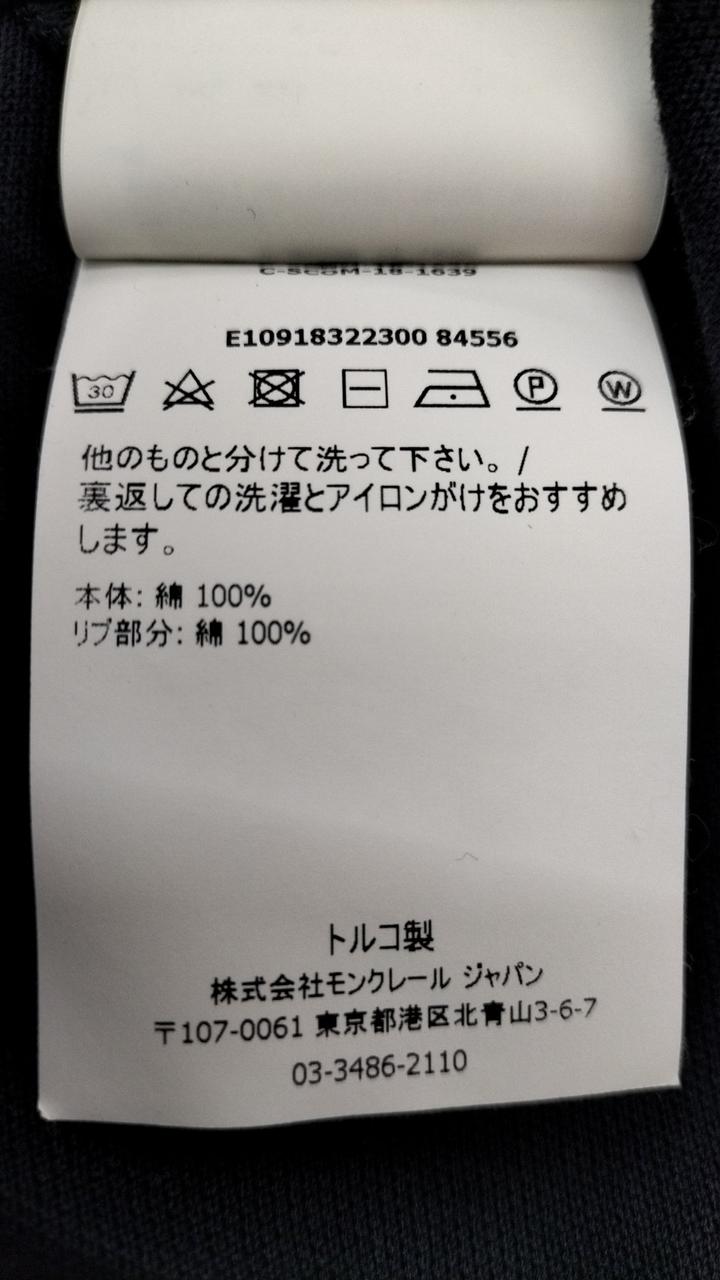 C-SCOM-18-1639
E10918322300 84556
30 P W
他のものと分けて洗って下さい。/
裏返しての洗濯とアイロンがけをおすすめ
します。
本体: 綿 100%
リブ部分: 綿 100%
トルコ製
株式会社モンクレール ジャパン
〒107-0061 東京都港区北青山3-6-7
03-3486-2110